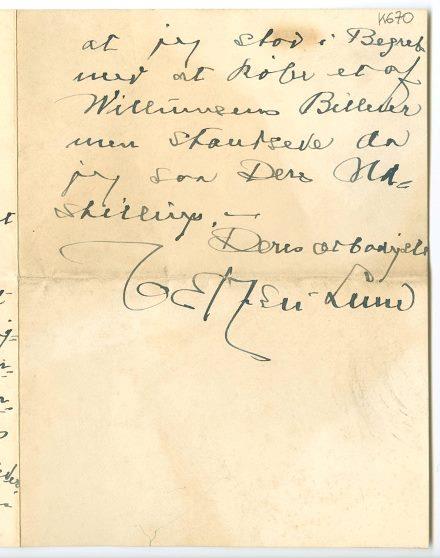 K670
at jeg stod i Begreb
med at købe et af
Willumsens Billeder
men standsede da
jeg saa Deres Ud=
stilling. —
Deres ærbødigste
Lund